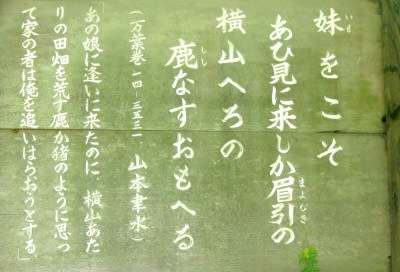 妹をこそ
いも
あひ見に来しか眉引の
まよびき
横山へろの
鹿なすおもへる
しし
(万葉巻一四–三五三一 山本聿水)
「あの娘に逢いに来たのに、横山あた
りの田畑を荒す鹿か猪のように思っ
て家の者は俺を追いはらおうとする」